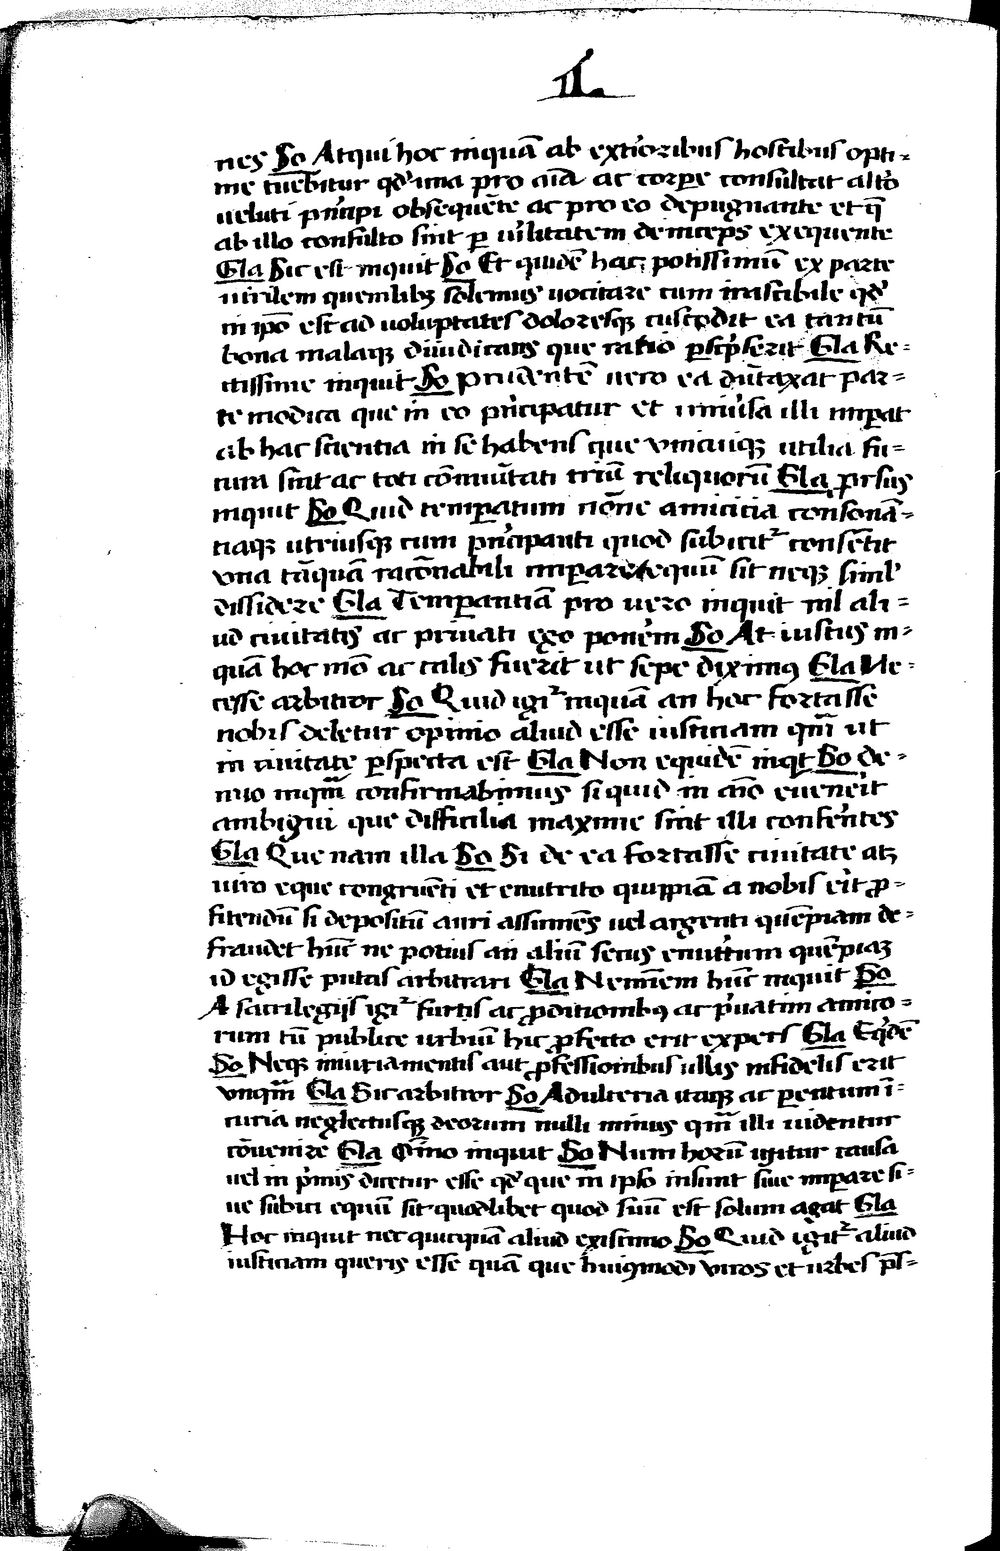 II.
nes So Atqui hoc inquā ab exterioribus hostibus opti-
me tuebitur qd' una pro aīa ac corpe consultat alt'o
ueluti principi obsequēte ac pro eo depugnante et q̄
ab illo consulto sint p uirilitatem deinceps exequente
Gla Sic est inquit So Et quidē hac potissimū ex parte
uirilem quemlibꝫ solemus uocitare cum irascibile qd'
in ip̄o est ad uoluptates doloresqꝫ custodit ea tantū
bona malaqꝫ diiudicans que ratio pscripserit Gla Re-
ctissime inquit So Prudentē uero ea dūtaxat par-
te modica que in eo principatur et uniuersa illi imperat
ab hac scientia in se habens que vnicuiqꝫ utilia fu-
tura sint ac toti cōmunitati triū reliquorū Gla Prsus
inquit So Quid temperatum nōne amicicia consonā-
tiaqꝫ utriusqꝫ cum principanti quod subicit᷑ consētit
vna tāquā racōnabili imperare equū sit neqꝫ simul
dissidere Gla Temperantiā pro uero inquit nil ali-
ud ciuitatis ac priuati ego ponerem So At iustus in-
quā hoc mō ac talis fuerit ut sepe diximus Gla Ne-
cesse arbitror So Quid igi᷑ inquā an hoc fortasse
nobis deletur opinio aliud esse iusticiam qm̄ ut
in ciuitate pspecta est Gla Non equidē inqt So De-
nuo inquā confirmabimus si quid in aīo euenerit
ambigui que difficilia maxime sint illi conferentes
Gla Que nam illa So Si de ea fortasse ciuitate atꝫ
uiro eque congruēti et enutrito quippiā a nobis erit p-
fitendū si depositū auri assumēs uel argenti quēpiam de-
fraudet hūc ne potius an aliū secus enutritum quēpiaꝫ
id egisse putas arbitrari Gla Neminem hūc inquit So
A sacrilegijs igi᷑ furtis ac pditionibꝯ ac priuatim amico-
rum tū publice urbiū hic pfecto erit expers Gla Eqdē
So Neqꝫ iniuriamentis aut pfessionibus ullis infidelis erit
vnqm̄ Gla Sic arbitror So Adulteria itaqꝫ ac parentum ī-
curia neglectusqꝫ deorum nulli minus qm̄ illi uidentur
cōuenire Gla Oīno inquit So Num horū igitur causa
uel in primis dicetur esse qd' que in ipso insunt siue imperare si-
ue subici equū sit quodlibet quod suū est solum agat Gla
Hoc inquit nec quicquā aliud existimo So Quid igit᷑ aliud
iusticiam queris esse quā que huiusmodi viros et urbes pst-